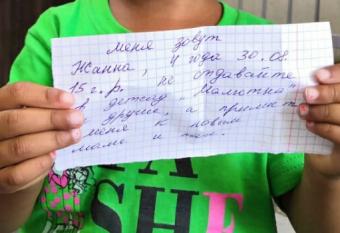 меня зовут
Жанна, 4 года 30.08.
15 г.р., не отдавайте
в детсад "Малютка"
и другие, а примите
меня к новым
маме и папе.
SHE